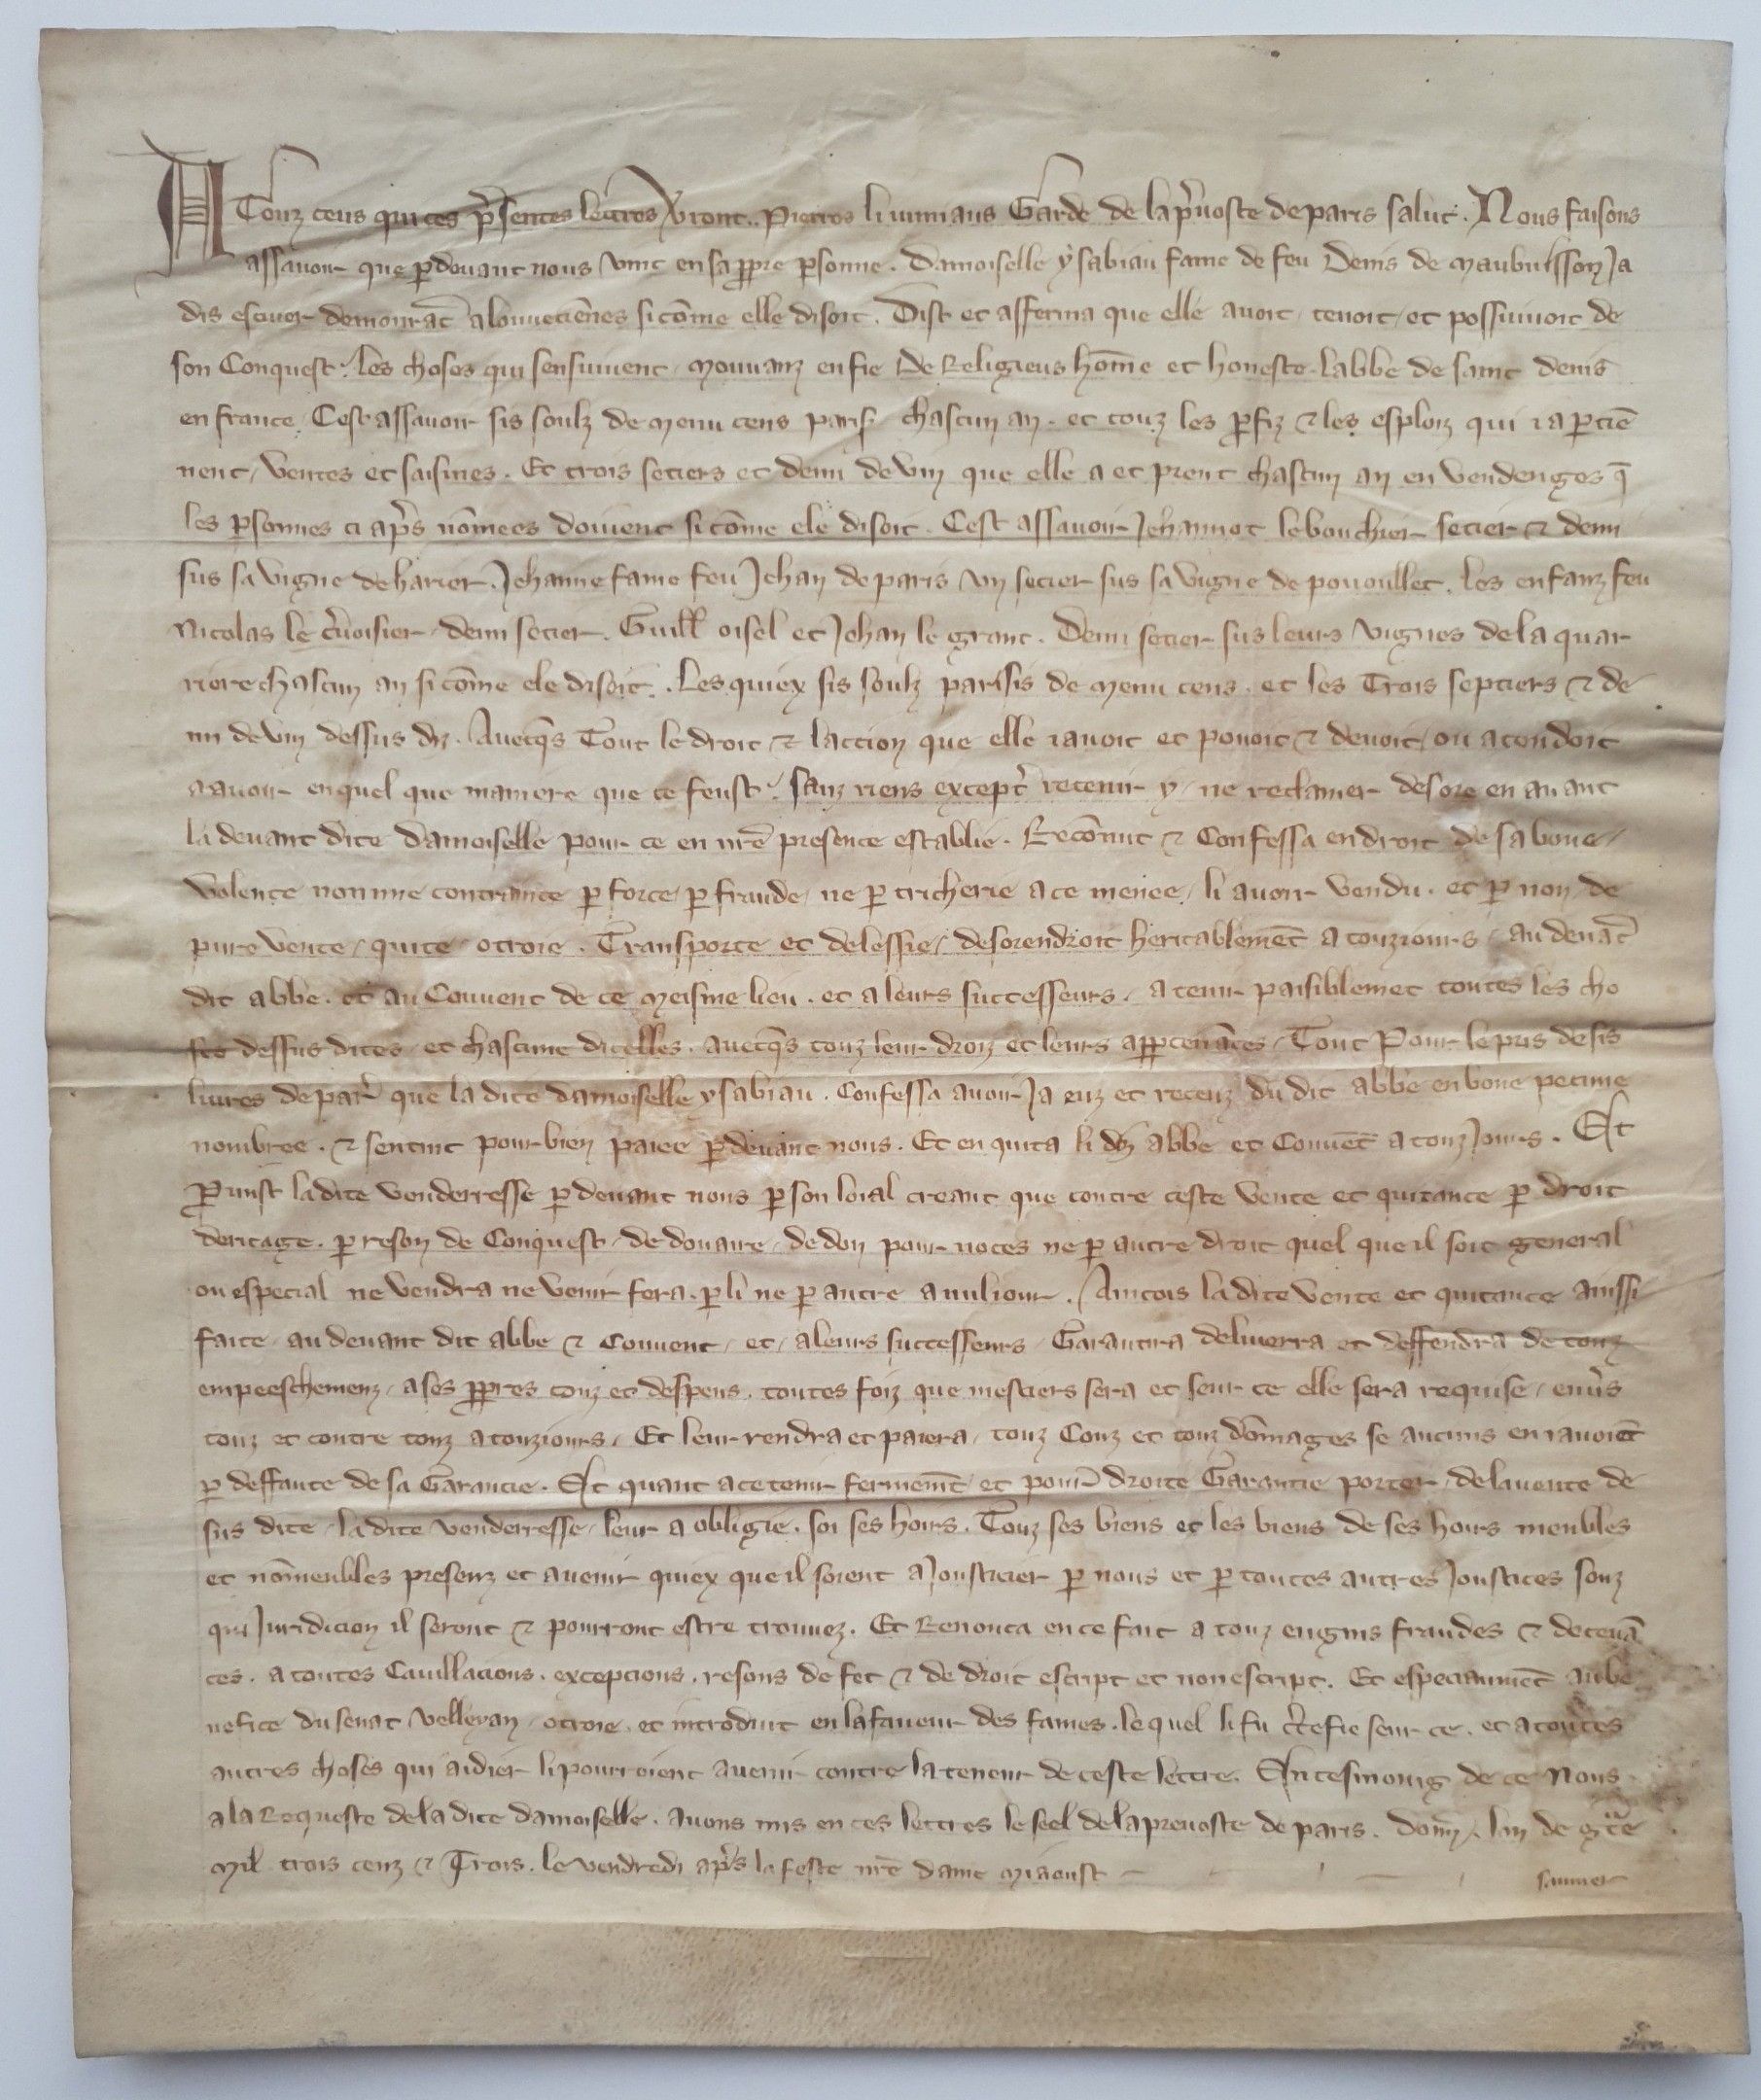 A Touz ceus qui ces p̃sentes lettres v̾ront. Pierres li iumiaus Garde de la p̾uoste de paris salut. Nous faisons
assauoir que ꝑ deuant nous vint en sa ꝓpre ꝑsonne. Damoiselle ysabiau fame de feu Denis de Maubuisson Ja
dis escuier demourãt a louueciẽnes si cõme elle disoit. Dist et afferma que elle auoit, tenoit, et possiuioit de
son Conquest. les choses qui sensuiuent, Mouuanz en fie de Religieus hõme et honeste labbe de saint denis
en france, Cest assauoir sis soulz de menu cens paris chascun an. et touz les ꝓfiz ⁊ les esploiz qui i aꝑtiẽ
nent, ventes et saisines. Et trois setiers et demi de vin que elle a et prent chascun an en vendenges q̃
les ꝑsonnes ci ap̃s nõmees doiuent si cõme ele disoit. Cest assauoir Jehannot le bouchier setier ⁊ demi
sus sa vigne de harier. Jehanne fame feu Jehan de paris vn setier sus sa vigne de pououllet. les enfanz feu
Nicolas le c̾uoisier, demi setier. Guill̃ oisel et Jehan le grant. Demi setier sus leurs vignes de la quar
riere chascun an si cõme ele disoit. Les quiex sis soulz parisis de menu cens. et les Trois septiers ⁊ de
mi de vin dessus diz. Auecq̃s Tout le droit ⁊ laccion que elle i auoit et pouoit ⁊ deuoit, ou atendoit
a auoir en quel que maniere que ce feust. sanz riens except̾ retenir y, ne reclamer desore en auant
la deuant dite damoiselle pour ce en nr̃e presence establie. Recõnut ⁊ Confessa en droit de sa bone
volente non mie contrainte ꝑ force, ꝑ fraude, ne ꝑ tricherie a ce menee, li auoir vendu. et ꝑ non de
pure vente, quite, otroie. Transporte et delessie, desorendroit heritablemẽt a touziours, au deuãt
dit abbe. et au Couuent de ce meisme lieu. et a leurs successeurs. a tenir paisiblemẽt toutes les cho
ses dessus dites, et chascune dicelles. auecq̃s touz leur droiz et leurs apꝑtenãces, Tout Pour le pris de sis
liures de par̾ que la dite damoiselle ysabiau. Confessa auoir Ja euz et receuz du dit abbe en bone pecune
nombree. ⁊ sen tint pour bien paiee ꝑ deuant nous. Et en quita li diz abbe et Couuẽt a touz Jours. Et
Promist la dite venderresse ꝑ deuant nous ꝑ son loial creant que contre ceste vente et quitance ꝑ droit
deritage. ꝑ reson de Conquest, de douaire, de don pour noces ne ꝑ autre droit quel que il soit general
ou especial ne vendra ne venir fera. ꝑ li ne ꝑ autre a nul iour. Aincois la dite vente et quitance ainssi
faite, au deuant dit abbe ⁊ Couuent, et, a leurs successeurs, Garantira deliuerra et deffendra de touz
empeeschemenz, a ses ꝓpres couz et despens. toutes foiz que mestiers sera et seur ce elle sera requise, enu̾s
touz et contre touz a touziours, Et leur rendra et paiera, touz Couz et touz dõmages se aucuns en i auoiẽt
ꝑ deffaute de sa Garantie. Et quant a ce tenir fermemẽt, et pour droite Garantie porter, de la uente de
sus dite, la dite venderresse, leur a obligie. soi ses hoirs. Touz ses biens et les biens de ses hoirs meubles
et nõmeubles presenz et auenir quiex que il soient a Joustisier ꝑ nous et ꝑ toutes autres Joustices souz
qui Juridicion il seront ⁊ pourront estre trouuez. Et Renonca en ce fait a touz engins fraudes ⁊ deceuã
ces. a toutes Cauillacions. excepcions. resons de fet ⁊ de droit escript et non escript. Et especiaumẽt au be
nefice du senat velleyan, otroie, et introduit en la faueur des fames. le quel li fu c̾tefie seur ce. et a toutes
autres choses qui aidier li pourroient a uenir contre la teneur de ceste lettre. En tesmoing de ce Nous
a la Requeste de la dite damoiselle. auons mis en ces lettres le seel de la preuoste de paris. donn̾, lan de gr̃ce
Mil trois cenz ⁊ Trois. le vendredi ap̃s la feste nr̃e dame Miaoust